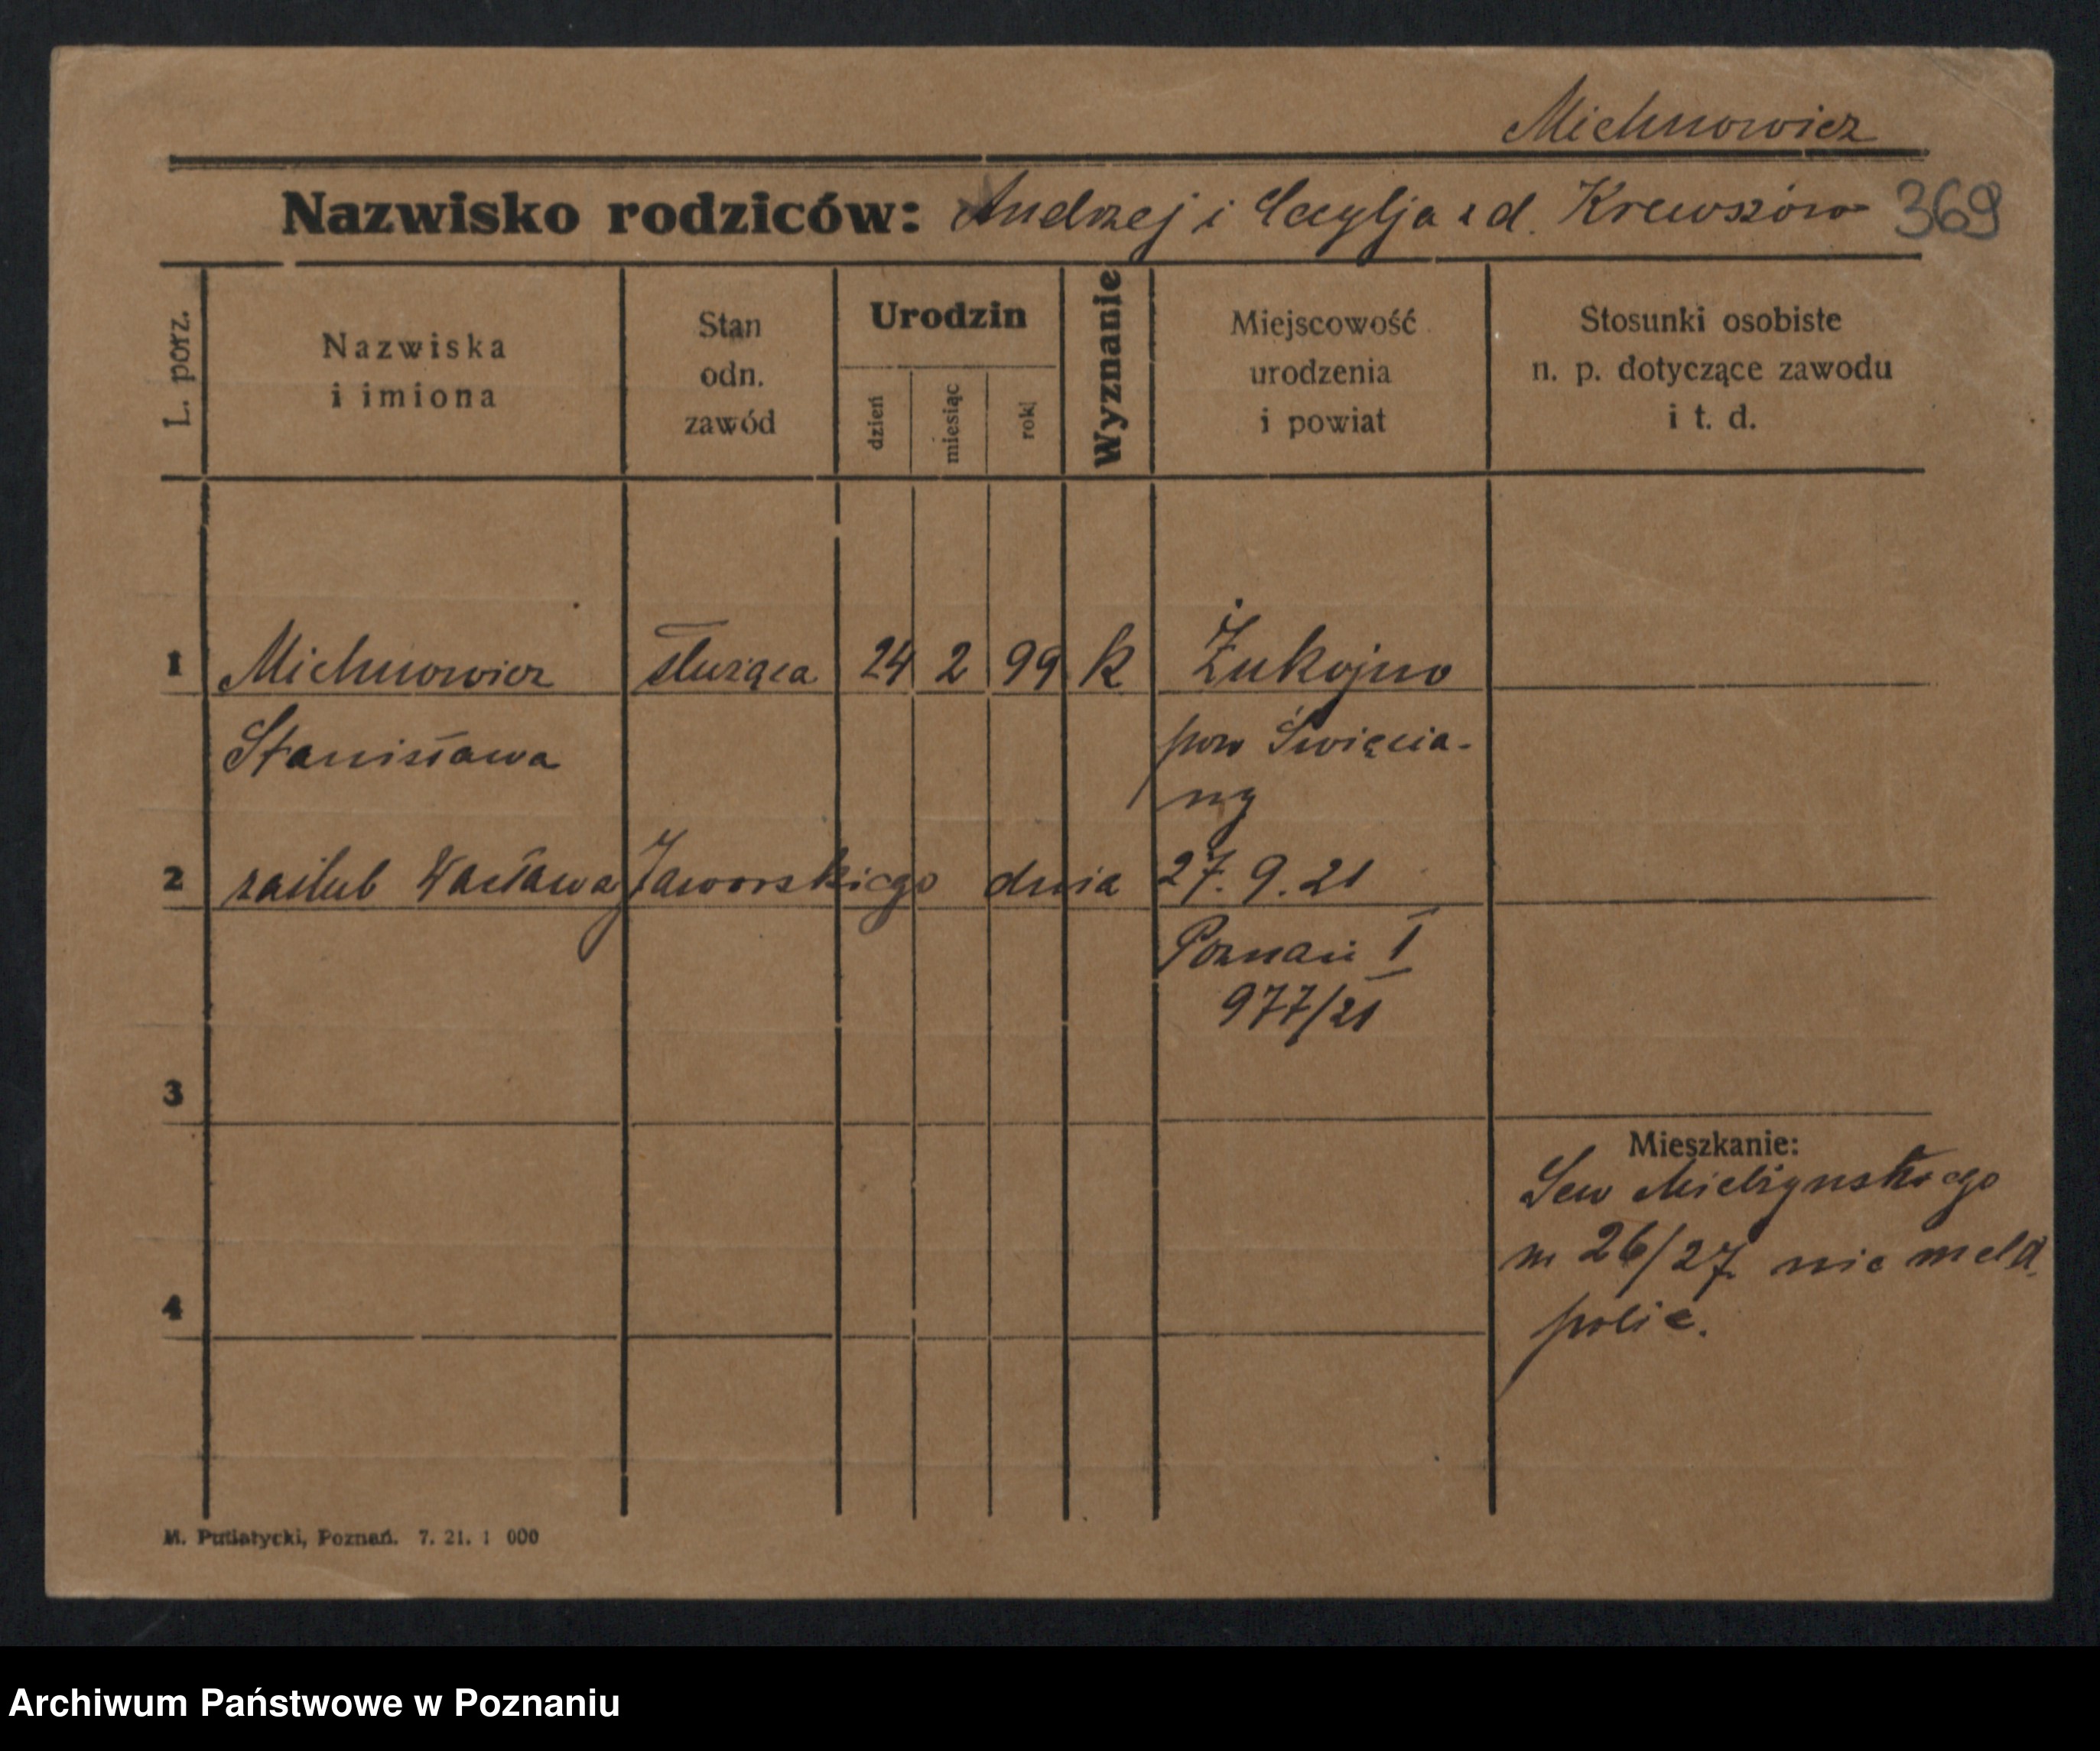 Michnowicz
Nazwisko rodziców: Andrzej i Cecylja z d. Krewszów 369
L. porz.
Nazwiska
i imiona
Stan
odn.
zawód
Urodzin
dzień
miesiąc
rok
Wyznanie
Miejscowość
urodzenia
i powiat
Stosunki osobiste
n. p. dotyczące zawodu
i t. d.
1 Michnowicz służąca 24 2 99 k Żukojno
Stanisława pow Święcia-
ny
2 zaślub Wacława Jaworskiego dnia 27. 9. 21
Poznań I
977/21
3
Mieszkanie:
Sew Mielżyńskiego
26/27 nie meld.
4
polic.
M. Putiatycki, Poznań. 7. 21. 1 000
Archiwum Państwowe w Poznaniu